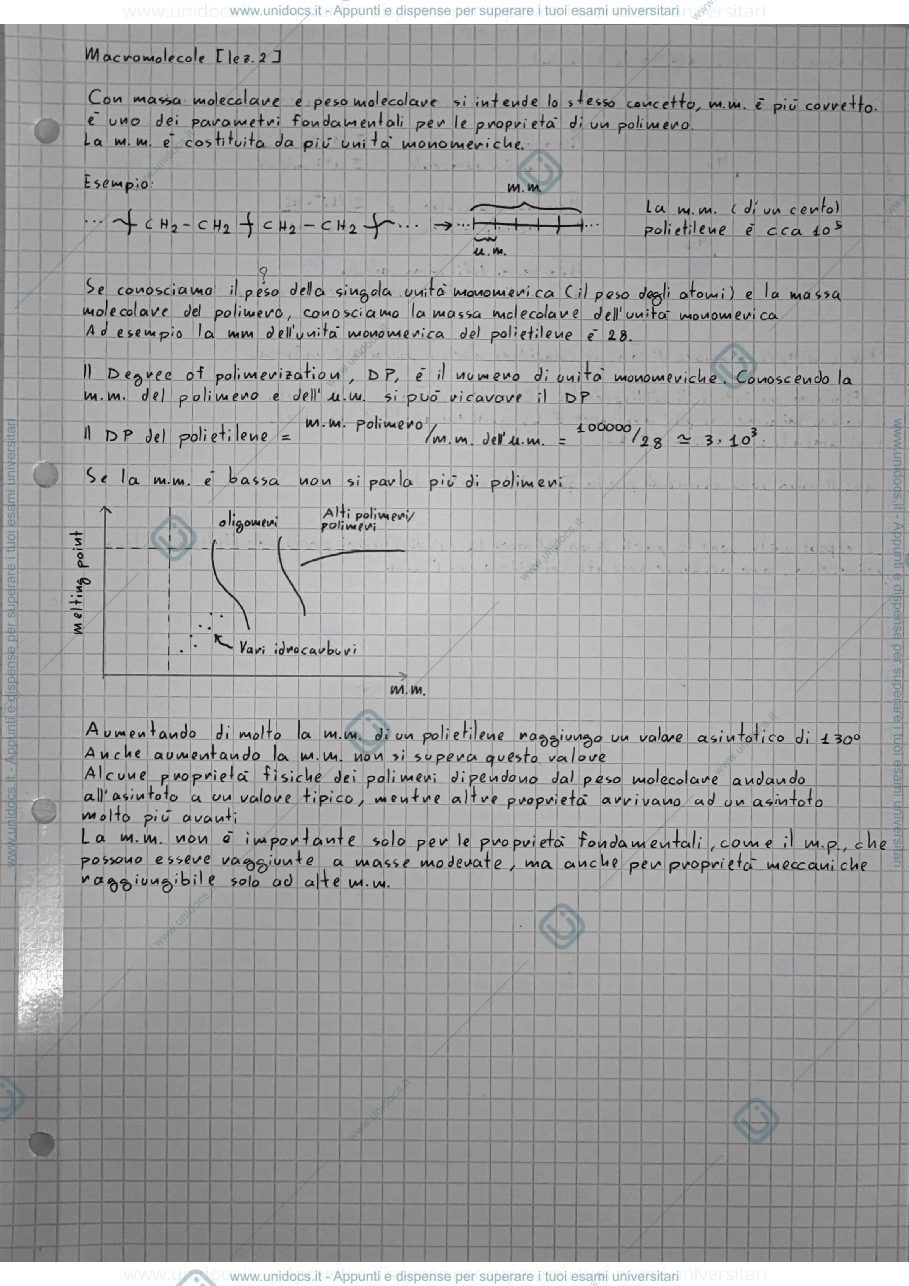 www.unidocs.it - Appunti e dispense per superare i tuoi esami universitari
Macromolecole [lez. 2]
Con massa molecolare e peso molecolare si intende lo stesso concetto, m.m. è più corretto.
è uno dei parametri fondamentali per le proprietà di un polimero.
La m.m. è costituita da più unità monomeriche.
Esempio:
m.m.
... CH2 - CH2 CH2 - CH2 ... → ... ...
u.m.
La m.m. (di un certo)
polietilene è cca 10⁵
?
Se conosciamo il peso della singola unità monomerica (il peso degli atomi) e la massa
molecolare del polimero, conosciamo la massa molecolare dell'unità monomerica
Ad esempio la mm dell'unità monomerica del polietilene è 28.
Il Degree of polimerization, DP, è il numero di unità monomeriche. Conoscendo la
m.m. del polimero e dell'u.m. si può ricavare il DP
Il DP del polietilene = m.m. polimero/m.m. dell'u.m. = 100000/28 ≃ 3·10³
Se la m.m. è bassa non si parla più di polimeri
oligomeri
Alti polimeri/
polimeri
melting point
Vari idrocarburi
m.m.
Aumentando di molto la m.m. di un polietilene raggiungo un valore asintotico di 130°
Anche aumentando la m.m. non si supera questo valore
Alcune proprietà fisiche dei polimeri dipendono dal peso molecolare andando
all'asintoto a un valore tipico, mentre altre proprietà arrivano ad un asintoto
molto più avanti
La m.m. non è importante solo per le proprietà fondamentali, come il m.p., che
possono essere raggiunte a masse moderate, ma anche per proprietà meccaniche
raggiungibile solo ad alte m.m.
www.unidocs.it - Appunti e dispense per superare i tuoi esami universitari
www.unidocs.it - Appunti e dispense per superare i tuoi esami universitari
www.unidocs.it - Appunti e dispense per superare i tuoi esami universitari